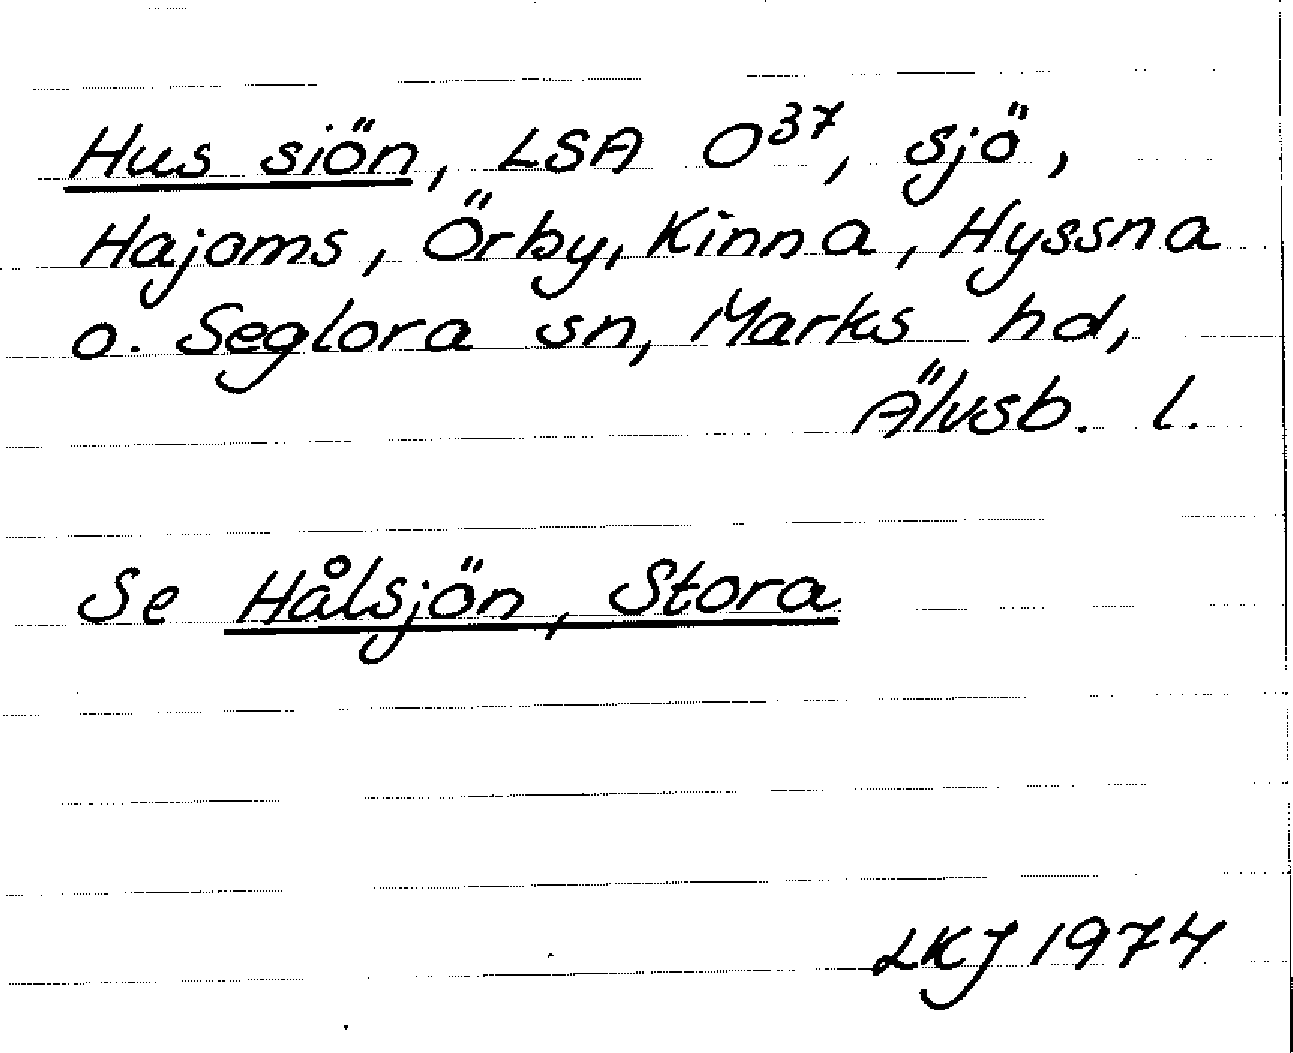 Hus siön, LSA O37, sjö,
Hajoms, Örby, Kinna, Hyssna
o. Seglora sn, Marks hd,
Älvsb. l.
Se Hålsjön, Stora
LKJ 1974